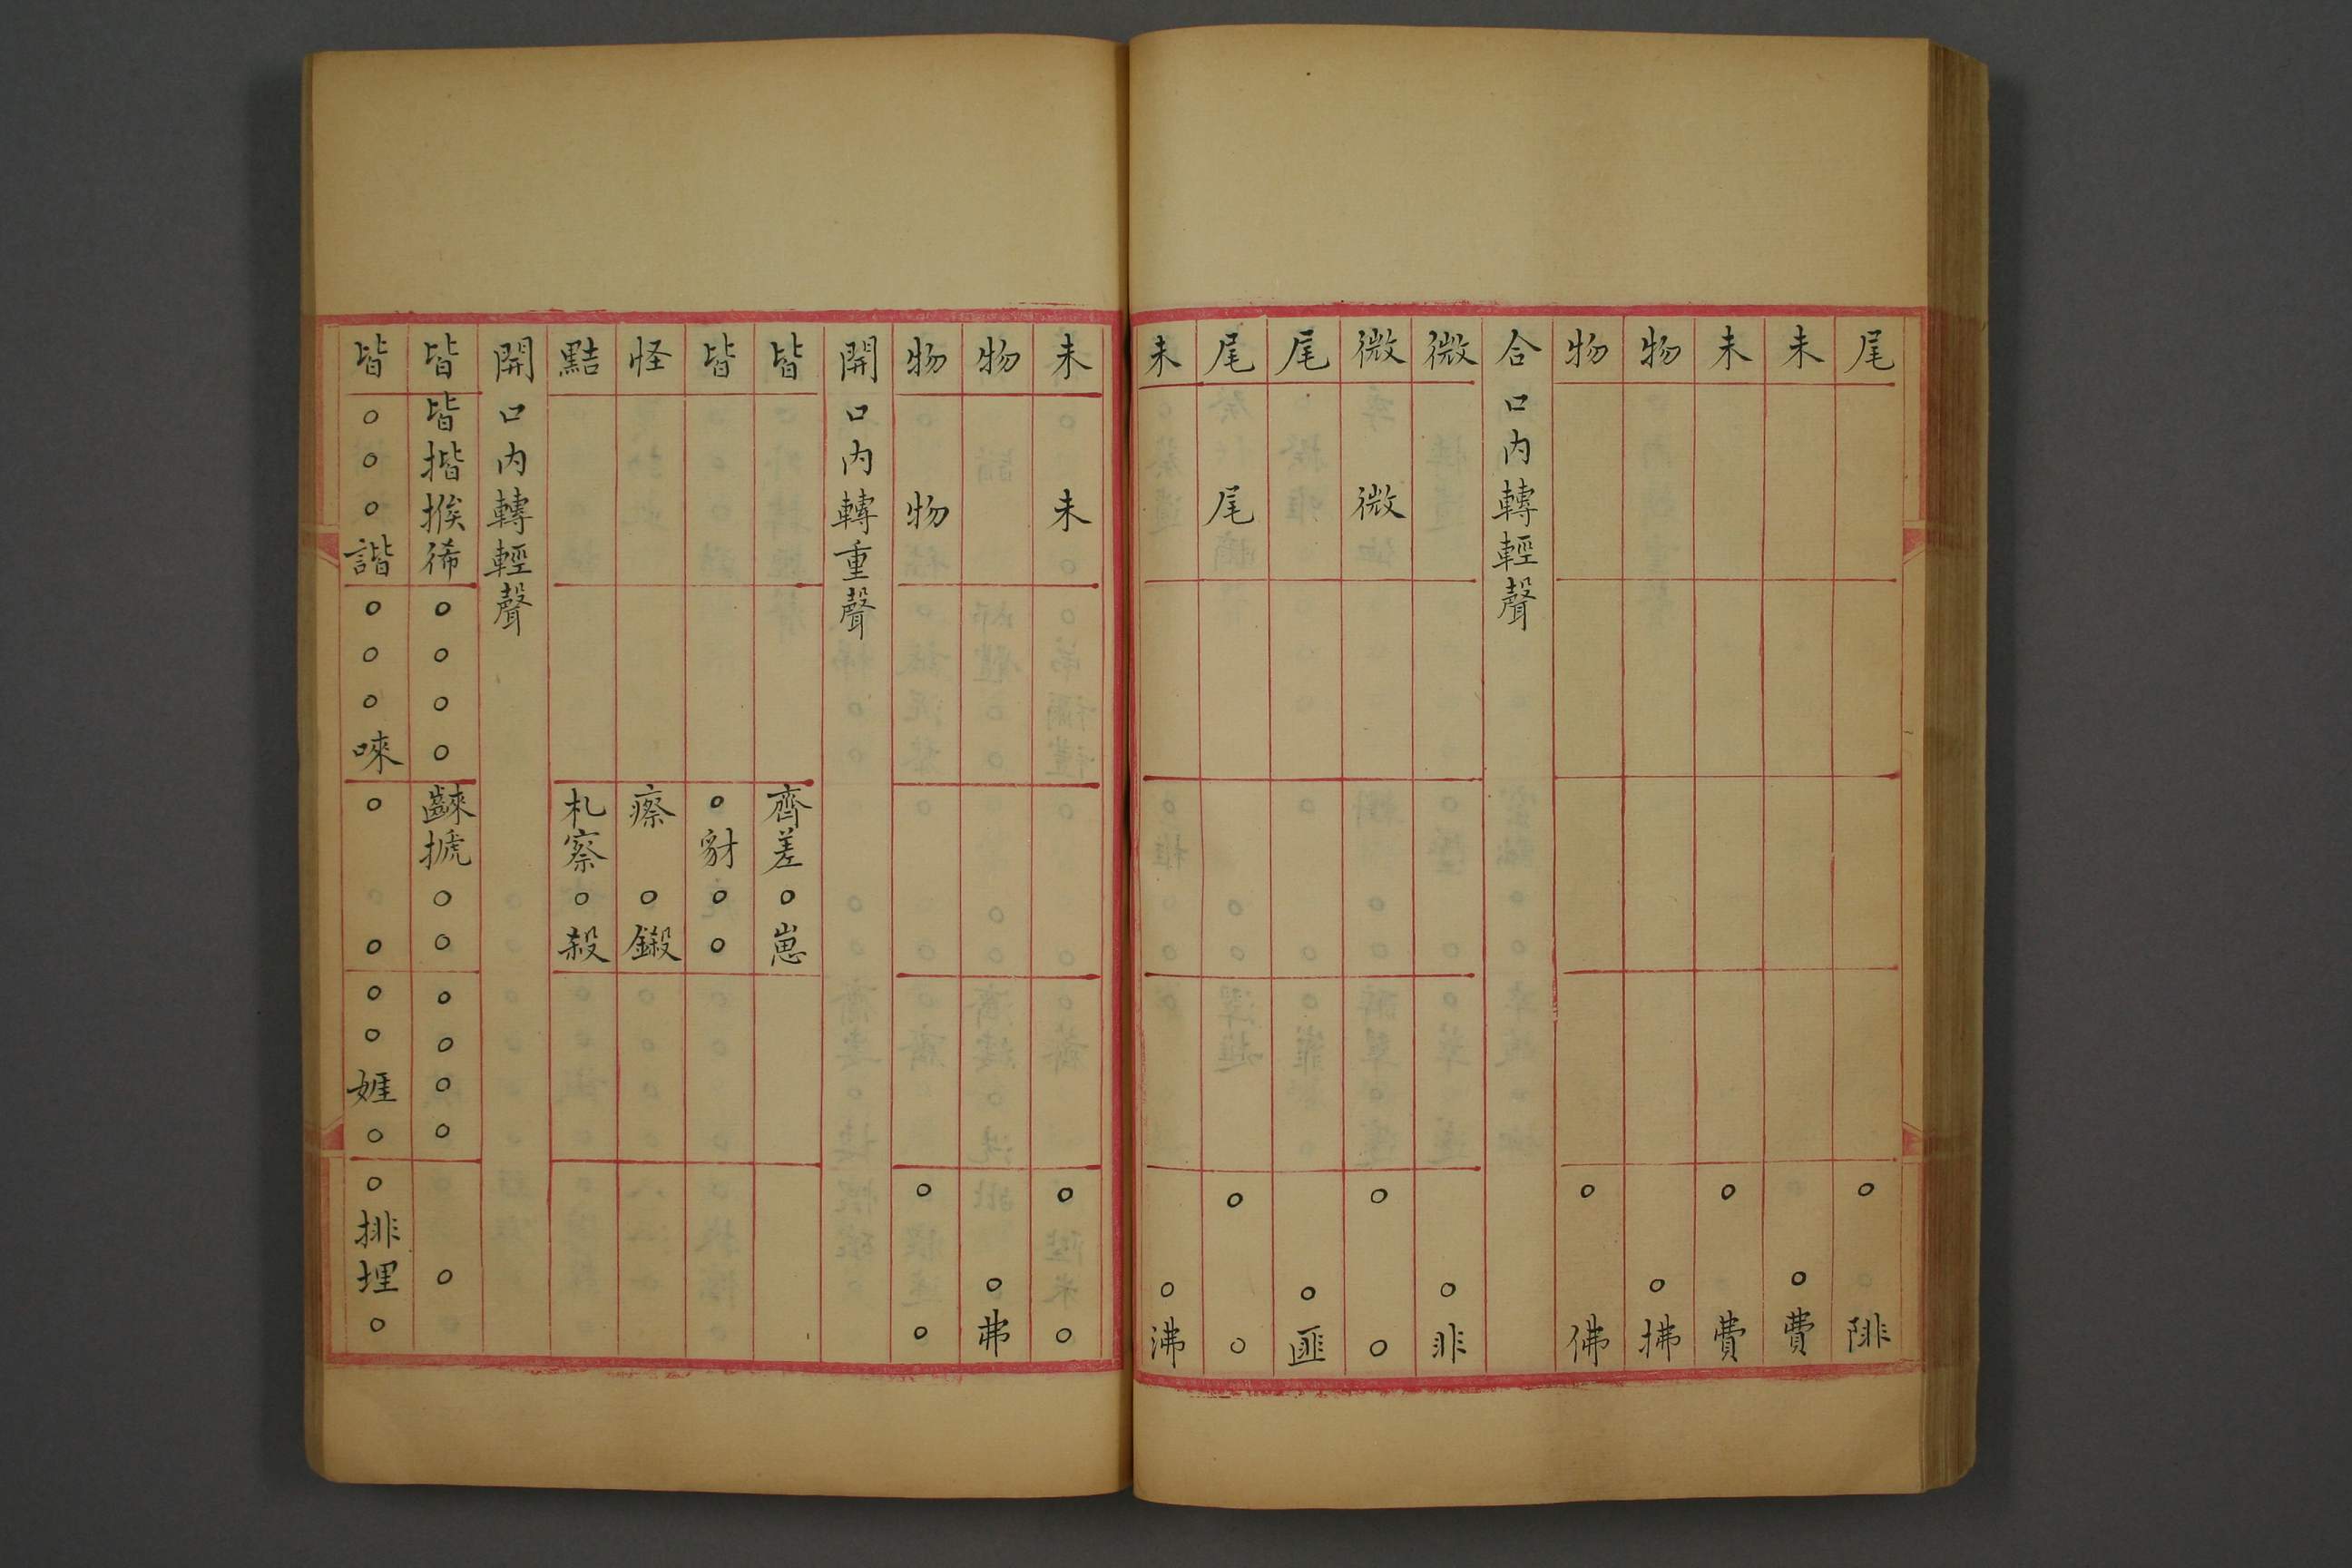 尾 ○ 陫
未 ○ 費
未 ○ 費
物 ○ 拂
物 ○ 佛
合口內轉輕聲
微 ○ 非
微 微 ○ ○
尾 ○ 匪
尾 尾 ○ ○
未 ○ 沸
未 ○ 未 ○ ○ ○ ○ ○
物 ○ 弗
物 ○ 物 ○ ○ ○ ○
開口內轉重聲
皆 齊差○崽
皆 ○豺○○
怪 瘵○鎩
黠 札察○殺
開口內轉輕聲
皆 皆揩㨟俙 ○○○○ 齼搋○○ ○○○○ ○
皆 ○○○諧 ○○○唻 ○○ ○○娾○ ○排埋○